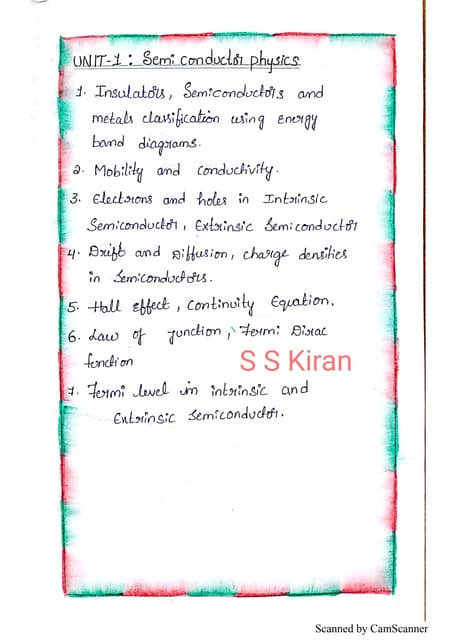 UNIT-1: Semi conductor physics
1. Insulators, Semiconductors and
metals classification using Energy
band diagrams.
2. Mobility and conductivity.
3. Electrons and holes in Intrinsic
Semiconductor, Extrinsic Semiconductor
4. Drift and Diffusion, charge densities
in Semiconductors.
5. Hall effect, Continuity Equation.
6. Law of Junction, Fermi Dirac
function
S S Kiran
7. Fermi level in intrinsic and
Extrinsic Semiconductor.
Scanned by CamScanner